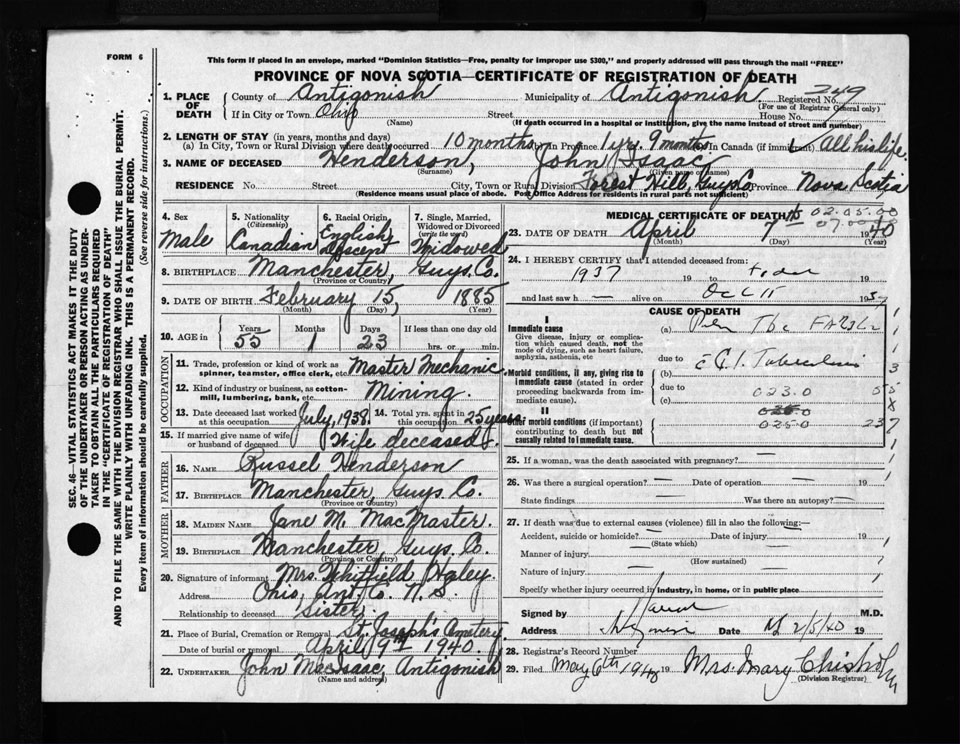 FORM 6
This form if placed in an envelope, marked "Dominion Statistics—Free, penalty for improper use $300," and properly addressed will pass through the mail "FREE"
PROVINCE OF NOVA SCOTIA—CERTIFICATE OF REGISTRATION OF DEATH
1. PLACE OF DEATH County of Antigonish Municipality of Antigonish Registered No. 349
(For use of Registrar General only)
If in City or Town Ohio Street House No.
(Name) (If death occurred in a hospital or institution, give the name instead of street and number)
2. LENGTH OF STAY (in years, months and days)
(a) In City, Town or Rural Division where death occurred 10 months In Province 1 yr. 9 months In Canada (if immigrant) All his life.
3. NAME OF DECEASED Henderson, John Isaac
(Surname) (Given name or names)
RESIDENCE No. Street City, Town or Rural Division Forest Hill, Guys Co. Province Nova Scotia
(Residence means usual place of abode. Post Office Address for residents in rural parts not sufficient)
SEC. 46—VITAL STATISTICS ACT MAKES IT THE DUTY
OF THE UNDERTAKER OR PERSON ACTING AS UNDER-
TAKER TO OBTAIN ALL THE PARTICULARS REQUIRED
IN THE "CERTIFICATE OF REGISTRATION OF DEATH"
AND TO FILE THE SAME WITH THE DIVISION REGISTRAR WHO SHALL ISSUE THE BURIAL PERMIT.
WRITE PLAINLY WITH UNFADING INK. THIS IS A PERMANENT RECORD.
Every item of information should be carefully supplied. (See reverse side for instructions.)
4. Sex Male
5. Nationality (Citizenship) Canadian
6. Racial Origin English Descent
7. Single, Married, Widowed or Divorced (write the word) Widowed
8. BIRTHPLACE Manchester, Guys. Co.
(Province or Country)
9. DATE OF BIRTH February 15, 1885
(Month) (Day) (Year)
10. AGE IN Years 55 Months 1 Days 23 If less than one day old hrs. or min.
OCCUPATION
11. Trade, profession or kind of work as spinner, teamster, office clerk, etc. Master Mechanic
12. Kind of industry or business, as cotton-mill, lumbering, bank, etc. Mining.
13. Date deceased last worked at this occupation July, 1938. 14. Total yrs. spent in this occupation 25 years.
15. If married give name of wife or husband of deceased Wife deceased.
FATHER
16. NAME Russel Henderson
17. BIRTHPLACE Manchester, Guys. Co.
(Province or Country)
MOTHER
18. MAIDEN NAME Jane M. MacMaster.
19. BIRTHPLACE Manchester, Guys. Co.
(Province or Country)
20. Signature of informant Mrs. Whitfield Haley.
Address Ohio, Ant. Co. N. S.
Relationship to deceased Sister.
21. Place of Burial, Cremation or Removal St. Joseph's Cemetery.
Date of burial or removal April 9th 1940.
22. UNDERTAKER John MacIsaac, Antigonish
(Name and address)
MEDICAL CERTIFICATE OF DEATH
02.05.00
23. DATE OF DEATH April 7th 1940
(Month) (Day) (Year)
24. I HEREBY CERTIFY that I attended deceased from:
1937 19 to 19
and last saw h — alive on Oct 11 193
CAUSE OF DEATH
I
Immediate cause
Give disease, injury or complication which caused death, not the mode of dying, such as heart failure, asphyxia, asthenia, etc
(a) Tbc
due to
Morbid conditions, if any, giving rise to immediate cause (stated in order proceeding backwards from immediate cause).
(b)
due to
(c) 023.0
II
Other morbid conditions (if important) contributing to death but not causally related to immediate cause.
025.0
25. If a woman, was the death associated with pregnancy? —
26. Was there a surgical operation? — Date of operation — 19
State findings — Was there an autopsy? —
27. If death was due to external causes (violence) fill in also the following:—
Accident, suicide or homicide? — Date of injury — 19
(State which)
Manner of injury —
(How sustained)
Nature of injury —
Specify whether injury occurred in industry, in home, or public place
Signed by M.D.
Address Date 2/5/40 19
28. Registrar's Record Number
29. Filed May 6th 1940 19 Mrs. Mary Chisholm
(Division Registrar)